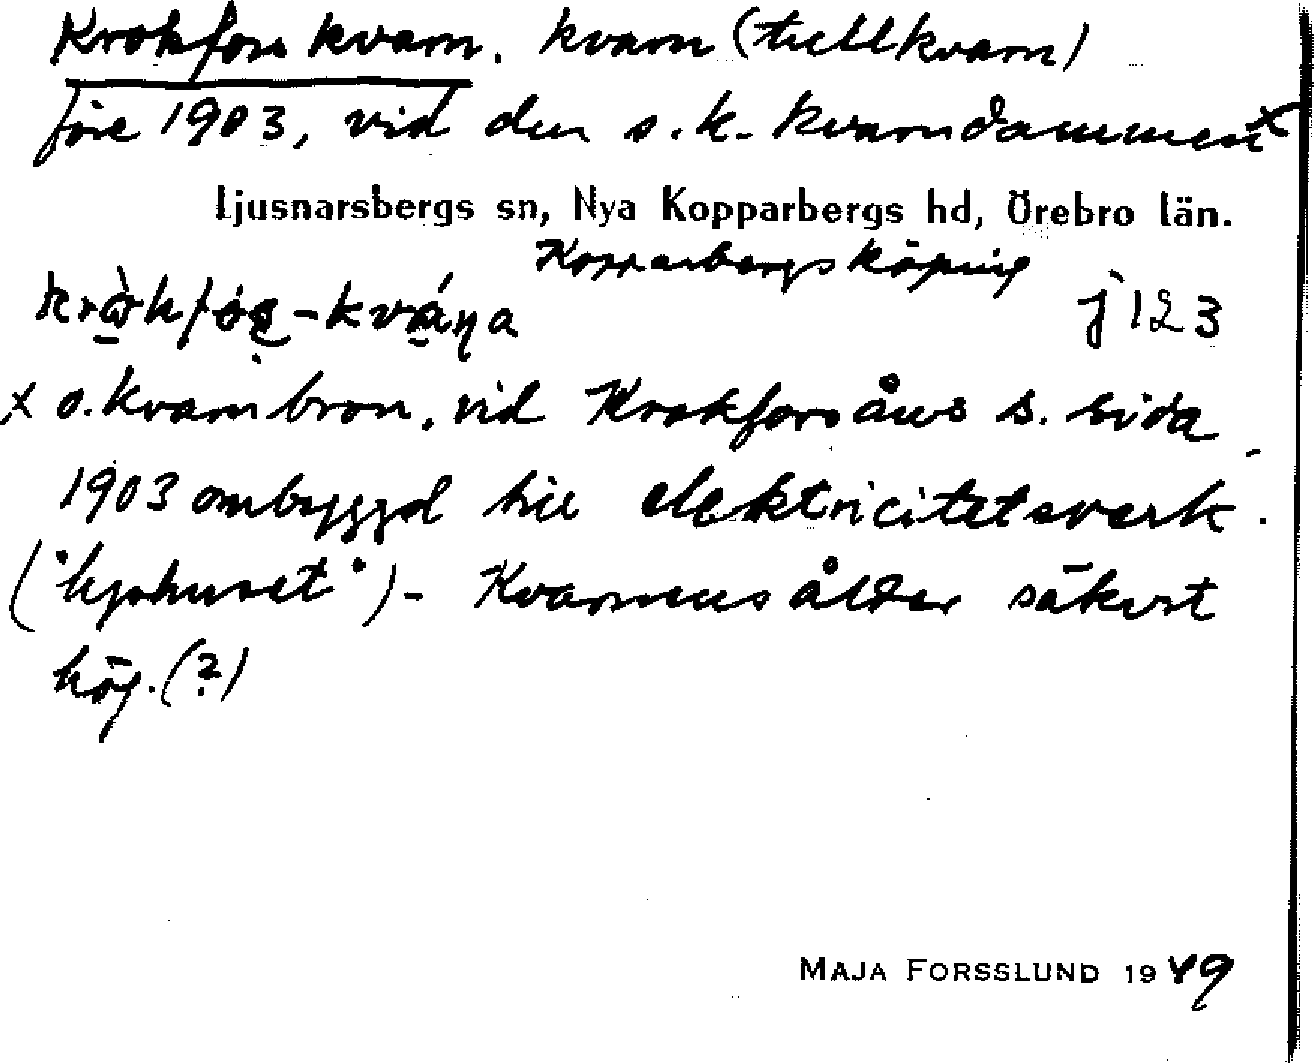 Krokfors kvarn. kvarn (tullkvarn)
före 1903, vid den s.k. kvarndammen x
Ljusnarsbergs sn, Nya Kopparbergs hd, Örebro län.
Kopparbergs köping
j 123
x o. kvarnbron, vid Krokforsåns s. sida
1903 ombyggd till elektricitetsverk.
("lyshuset") - Kvarnens ålder säkert
hög. (?)
MAJA FORSSLUND 1949